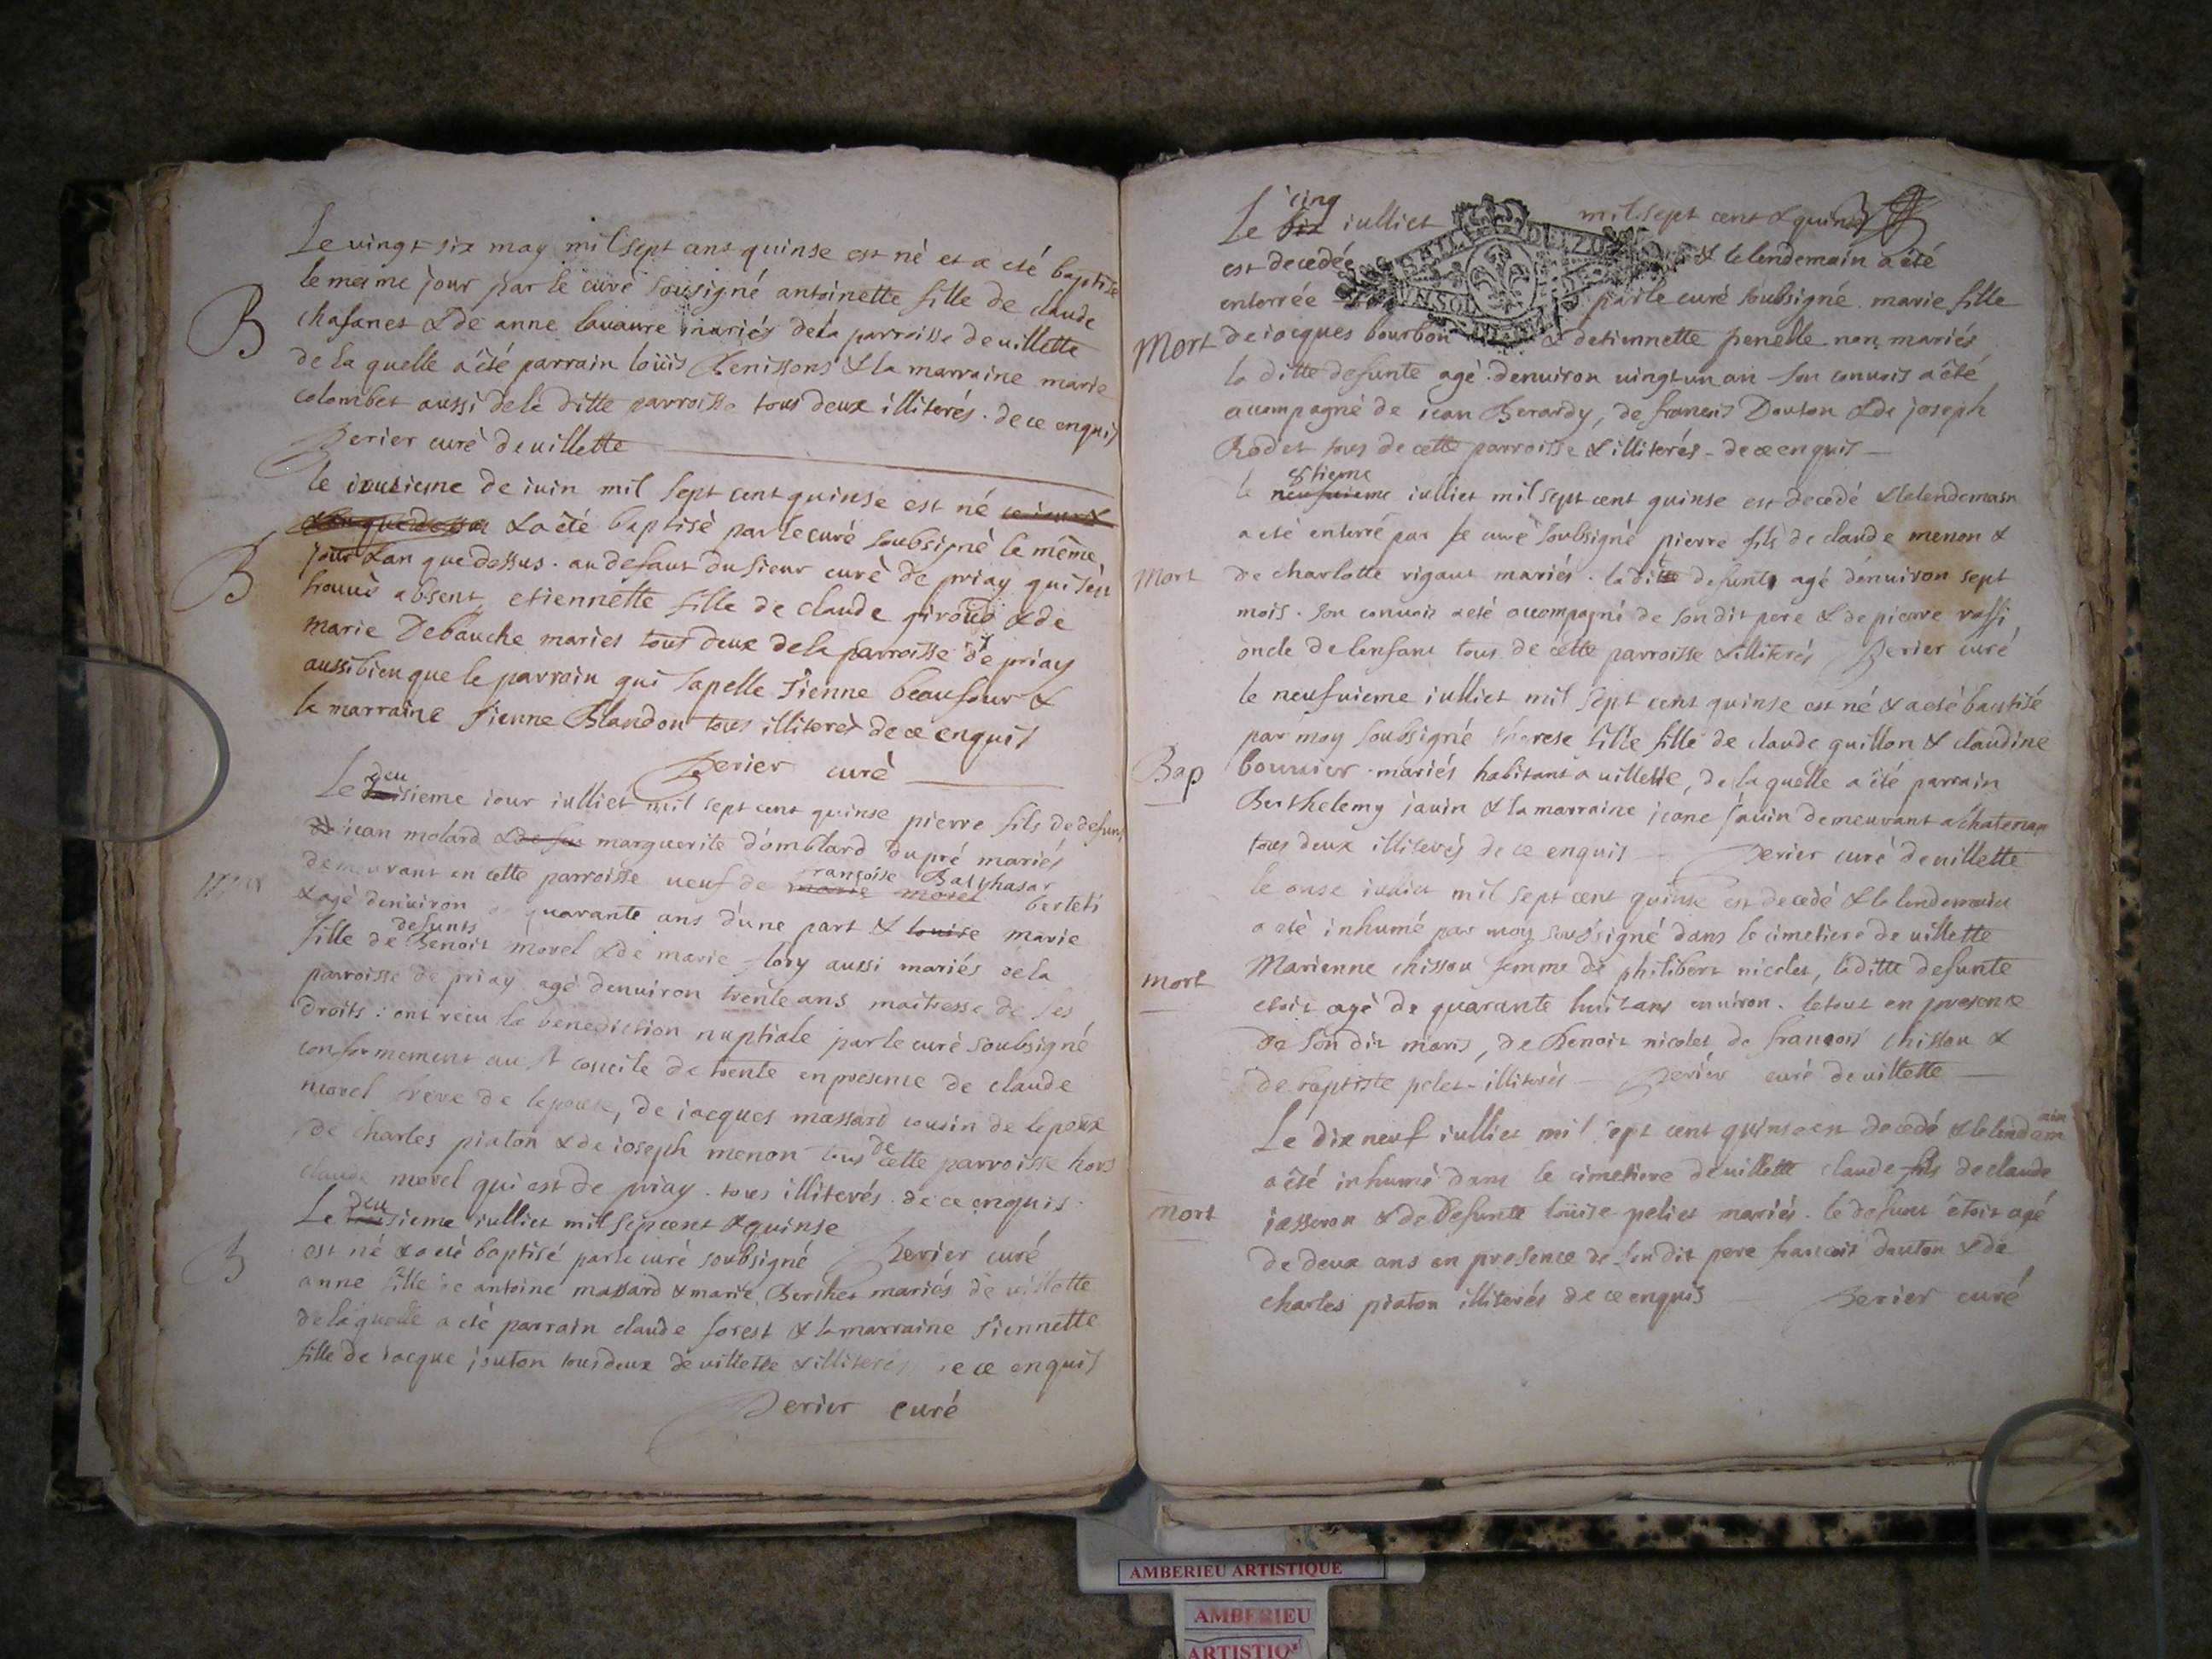 Le vingt six may mil sept cens quinse est né et a eté baptisé
le meme jour par le curé sousigné antoinette fille de claude
B
chasanet & de anne lavaure mariés de la parroisse de villette
de la quelle a été parrain loüis Benissons & la marraine marie
colombet aussi de la ditte parroisse tous deux illiterés . de ce enquis
Perier curé de villette
le de iuin mil sept cent quinse est né
& a été baptisé par le curé soubsigné le même
B
jour & an que dessus . au defaut du sieur curé de priay qui s'en
trouvé absent, etiennette fille de claude giroud & de
marie Debauche mariés tous deux de la parroisse de priay
aussi bien que le parrain qui sapelle tienne beausour &
la marraine tienne Blandon tous illiterés de ce enquis
Perier curé
Le deusieme iour iulliet mil sept cent quinse pierre fils de defunt
iean molard marguerite domblard dupré mariés
demeurant en cette parroisse veuf de françoise Balthasar
& agé denuiron quarante ans d'une part & louise marie
fille de defunts Benoit morel & de marie lory aussi mariés de la
parroisse de priay agé denuiron trente ans maitresse de ses
droits : ont reçu la benediction nuptiale par le curé soubsigné
conformement au st concile de trente en presence de claude
morel frere de lepouse, de iacques massard cousin de lepoux
de charles piaton & de ioseph menon tous de cette parroisse hors
claude morel qui est de priay . tous illiterés . de ce enquis .
Le deusieme iulliet mil sept cent & quinse
est né & a eté baptisé par le curé soubsigné Perier curé
B
anne fille de antoine massard & marie Berthet mariés de villette
de la quelle a eté parrain claude forest & la marraine tiennette
fille de iacque iouton tous deux de villette & illiterés de ce enquis
Perier curé
Le cinq six iulliet mil sept cent & quinse
est decedée & le lendemain a été
enterrée par le curé soubsigné . marie fille
Mort
de iacques bourbon & detiennette penelle non mariés
la ditte defunte agé . denuiron vingt un an son convois a été
acompagné de iean Berardy, de francois Douton & de joseph
Rodet tous de cette parroisse & illiterés - de ce enquis
le 8tieme neufuieme iulliet mil sept cent quinse est decedé & le lendemain
a eté enterré par le curé soubsigné pierre fils de claude menon &
Mort
de charlotte rigaut mariés . ladit defunt agé denuiron sept
mois . son convois a eté accompagné de son dit pere & de pierre rossi
oncle de lenfant tous de cette parroisse & illiterés Perier curé
le neufuieme iulliet mil sept cent quinse est né & a eté baptisé
par moy soubsigné therese fille fille de claude guillon & claudine
Bap
bouvier . mariés habitant a villette, de la quelle a été parrain
Berthelemy javin & la marraine jeane javin demeurant a chatenay
tous deux illiterés de ce enquis Perier curé de villette
le onse iulliet mil sept cent quinse est decedé & le lendemain
a eté inhumé par moy soubsigné dans le cimetiere de villette
mort
Marienne chisson femme de philibert nicolet, la ditte defunte
etoit agé de quarante huit ans environ . le tout en presence
de son dit maris, de Benoit nicolet de francois chisson &
de baptiste pelet - illiterés Perier curé de villette
Le dix neuf iulliet mil sept cent quinse est decedé & le lendemain
a été inhumé dans le cimetiere de villette claude fils de claude
mort
iasseron & de Defunte loüise peliet mariés . le defunt étoit agé
de deux ans en presence de son dit pere francois douton & de
charles piaton illiterés de ce enquis Perier curé
AMBERIEU ARTISTIQUE
AMBERIEU
ARTISTIQ